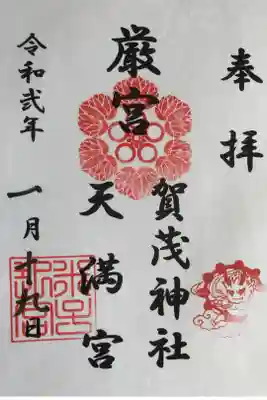 奉拝
賀茂神社
厳宮
天満宮
令和弐年
一月十九日